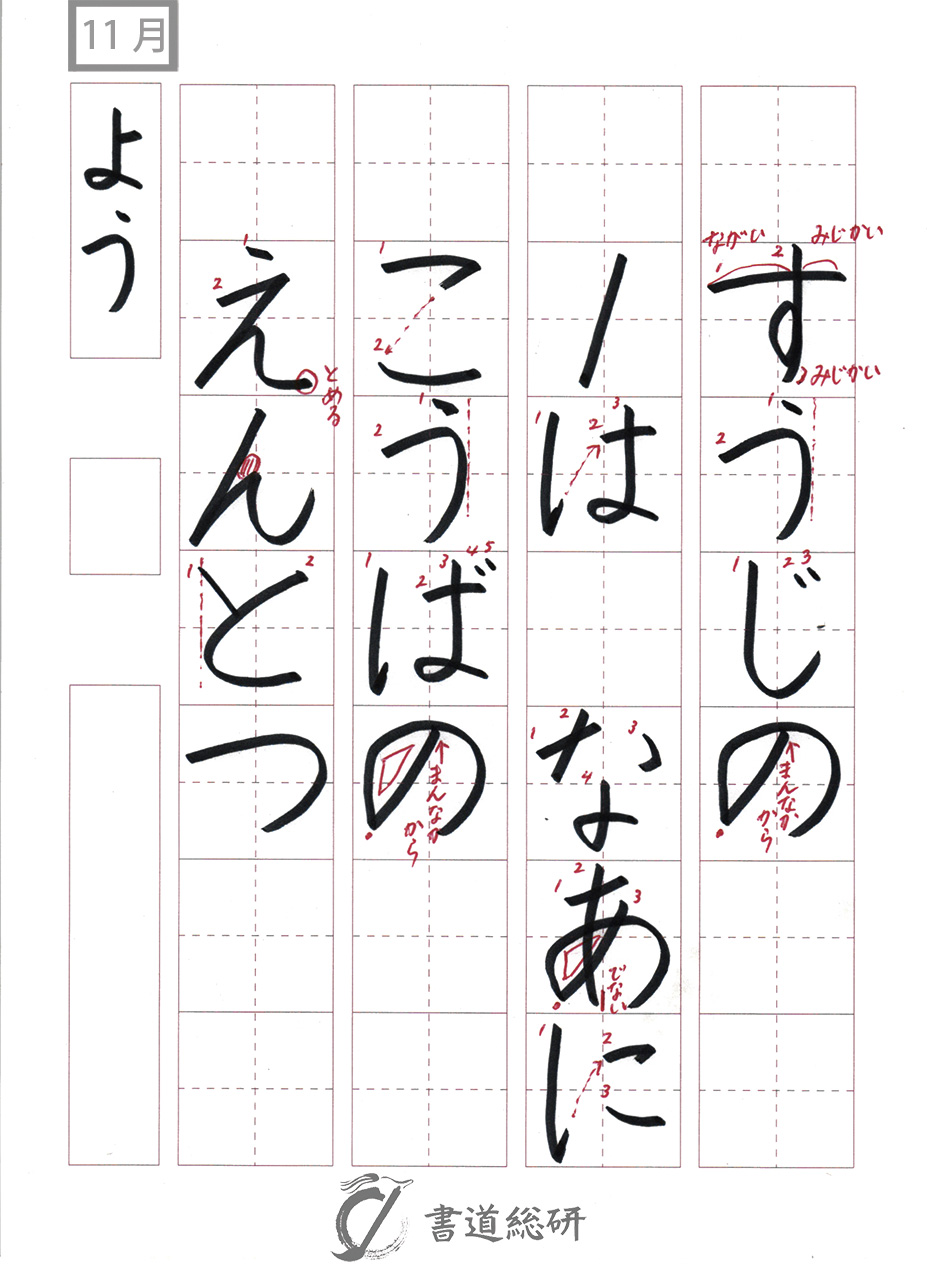 11月
すうじの
ながい
みじかい
みじかい
まんなか
から
1は なあに
でない
こうばの
まんなか
から
えんとつ
とめる
よう
書道総研